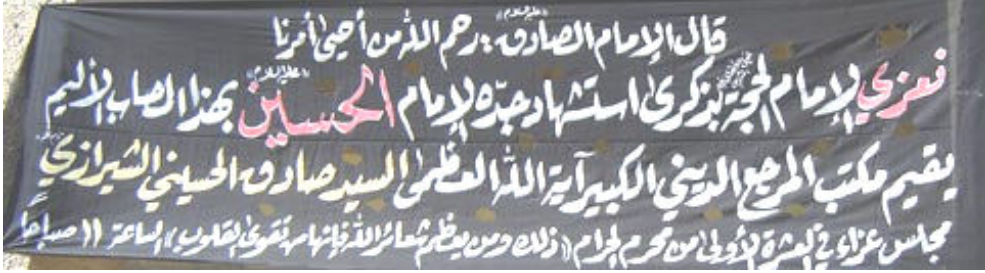 قال الإمام الصادق «عليه السلام»: رحم الله من أحيى أمرنا
نعزي الإمام الحجة بذكرى استشهاد جدّه الإمام الحسين «عليه السلام» بهذا المصاب الأليم
يقيم مكتب المرجع الديني الكبير آية الله العظمى السيد صادق الحسيني الشيرازي
مجلس عزاء في العشرة الأولى من محرم الحرام «ذلك ومن يعظم شعائر الله فإنها من تقوى القلوب» الساعة ١١ صباحاً